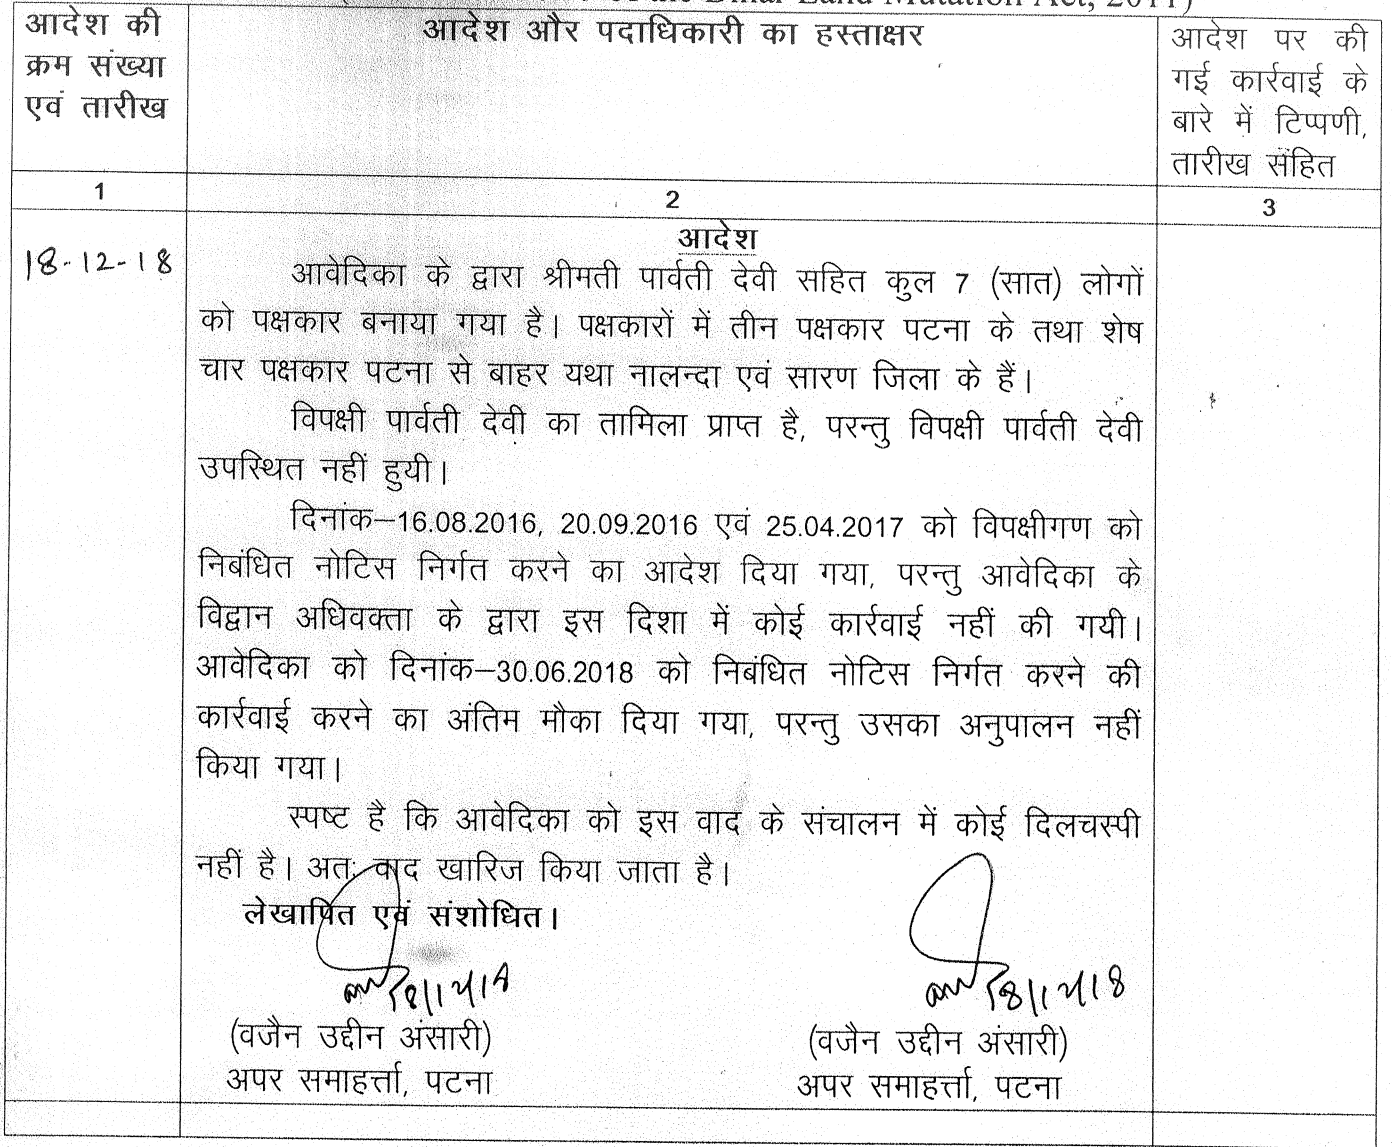 the Bihar Land Mutation Act, 2011)
आदेश की
क्रम संख्या
एवं तारीख
आदेश और पदाधिकारी का हस्ताक्षर
आदेश पर की
गई कार्रवाई के
बारे में टिप्पणी,
तारीख संहित
1
2
3
18-12-18
आदेश
आवेदिका के द्वारा श्रीमती पार्वती देवी सहित कुल 7 (सात) लोगों
को पक्षकार बनाया गया है। पक्षकारों में तीन पक्षकार पटना के तथा शेष
चार पक्षकार पटना से बाहर यथा नालन्दा एवं सारण जिला के हैं।
विपक्षी पार्वती देवी का तामिला प्राप्त है, परन्तु विपक्षी पार्वती देवी
उपस्थित नहीं हुयी।
दिनांक–16.08.2016, 20.09.2016 एवं 25.04.2017 को विपक्षीगण को
निबंधित नोटिस निर्गत करने का आदेश दिया गया, परन्तु आवेदिका के
विद्वान अधिवक्ता के द्वारा इस दिशा में कोई कार्रवाई नहीं की गयी।
आवेदिका को दिनांक–30.06.2018 को निबंधित नोटिस निर्गत करने की
कार्रवाई करने का अंतिम मौका दिया गया, परन्तु उसका अनुपालन नहीं
किया गया।
स्पष्ट है कि आवेदिका को इस वाद के संचालन में कोई दिलचस्पी
नहीं है। अतः वाद खारिज किया जाता है।
लेखापित एवं संशोधित।
18/12/18
18/12/18
(वजैन उद्दीन अंसारी)
(वजैन उद्दीन अंसारी)
अपर समाहर्त्ता, पटना
अपर समाहर्त्ता, पटना